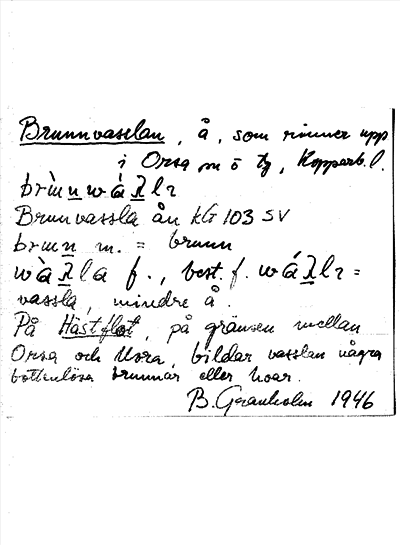 Brunnvasslan, å, som rinner upp
i Orsa m ö tg, Kopparb. l.
Brunvassla ån kG 103 SV
m. = brunn
f., best. f.
vassla, mindre å.
På Hästflot, på gränsen mellan
Orsa och Mora, bildar vasslan några
bottenlösa brunnar eller hoar.
B. Granholm 1946